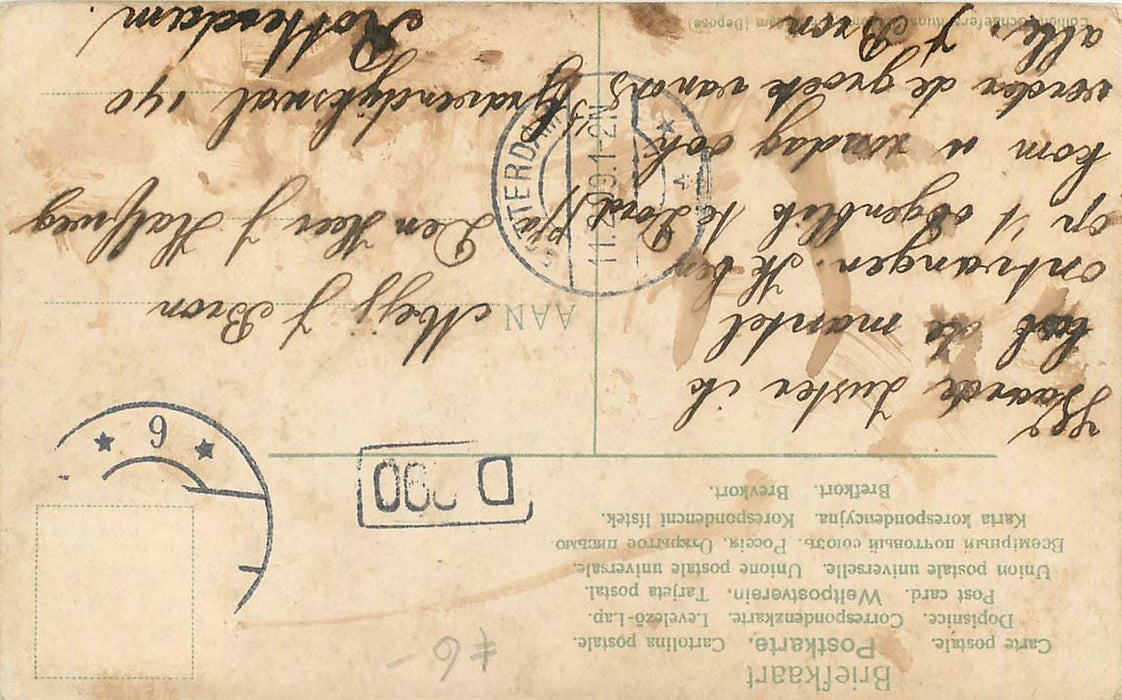 Briefkaart
Carte postale. Postkarte. Cartolina postale.
Dopisnice. Correspondenzkarte. Levelező-Lap.
Post card. Weltpostverein. Tarjeta postal.
Union postale universelle. Unione postale universale.
Всемірный почтовый союзъ. Россія. Открытое письмо.
Karta korespondencyjna. Korespondencní lístek.
Brefkort. Brevkort.
Waarde Zuster ik
heb de mantel
ontvangen. Ik ben
op 't oogenblik te Dordt
kom u zondag ook
verder de groete van ons
alle, J Bron
AAN
Mejj J Bron
p/a Den Heer J Halfweg
's Gravendijkswal 140
Rotterdam.
ROTTERDAM
11.2.09.1-2N
D
6
6-